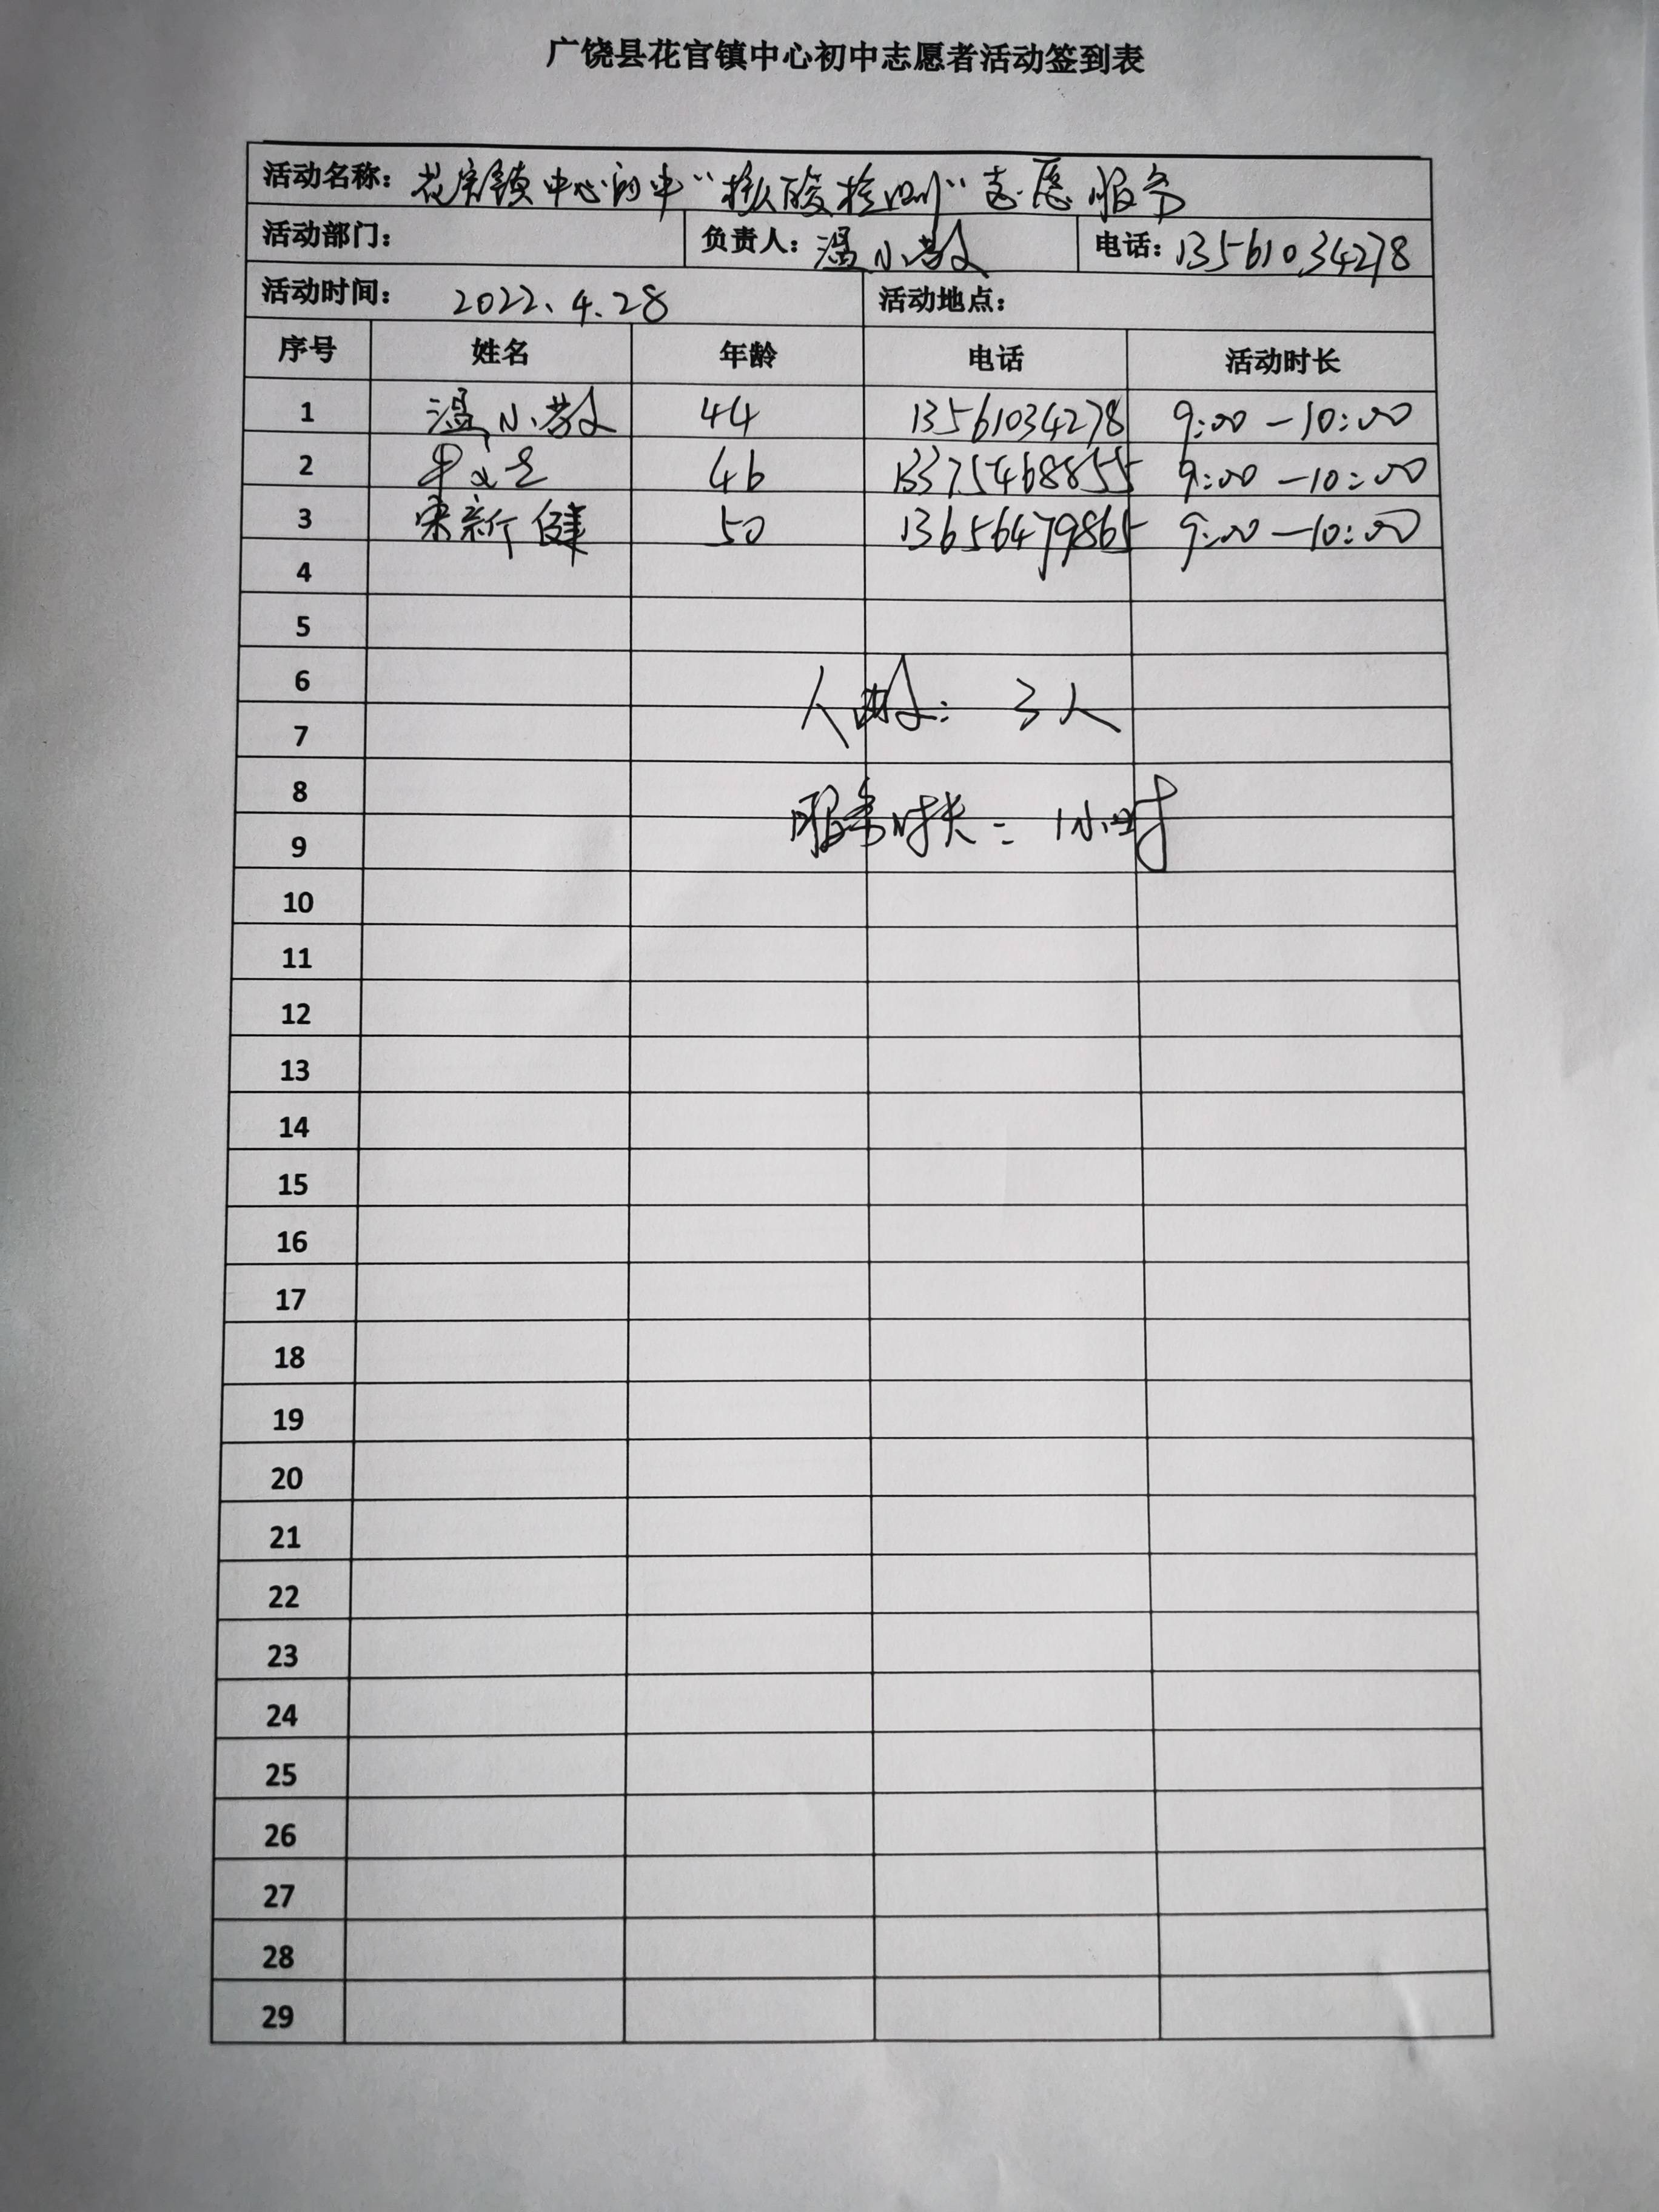 广饶县花官镇中心初中志愿者活动签到表
活动名称：花官镇中心初中“核酸检测”志愿服务
活动部门： 负责人：温小敬 电话：13561034278
活动时间： 2022.4.28 活动地点：
序号 姓名 年龄 电话 活动时长
1 温小敬 44 13561034278 9:00-10:00
2 46 13375468855 9:00-10:00
3 宋新健 50 13656479865 9:00-10:00
4
5
6
人数： 3人
7
8
服务时长： 1小时
9
10
11
12
13
14
15
16
17
18
19
20
21
22
23
24
25
26
27
28
29